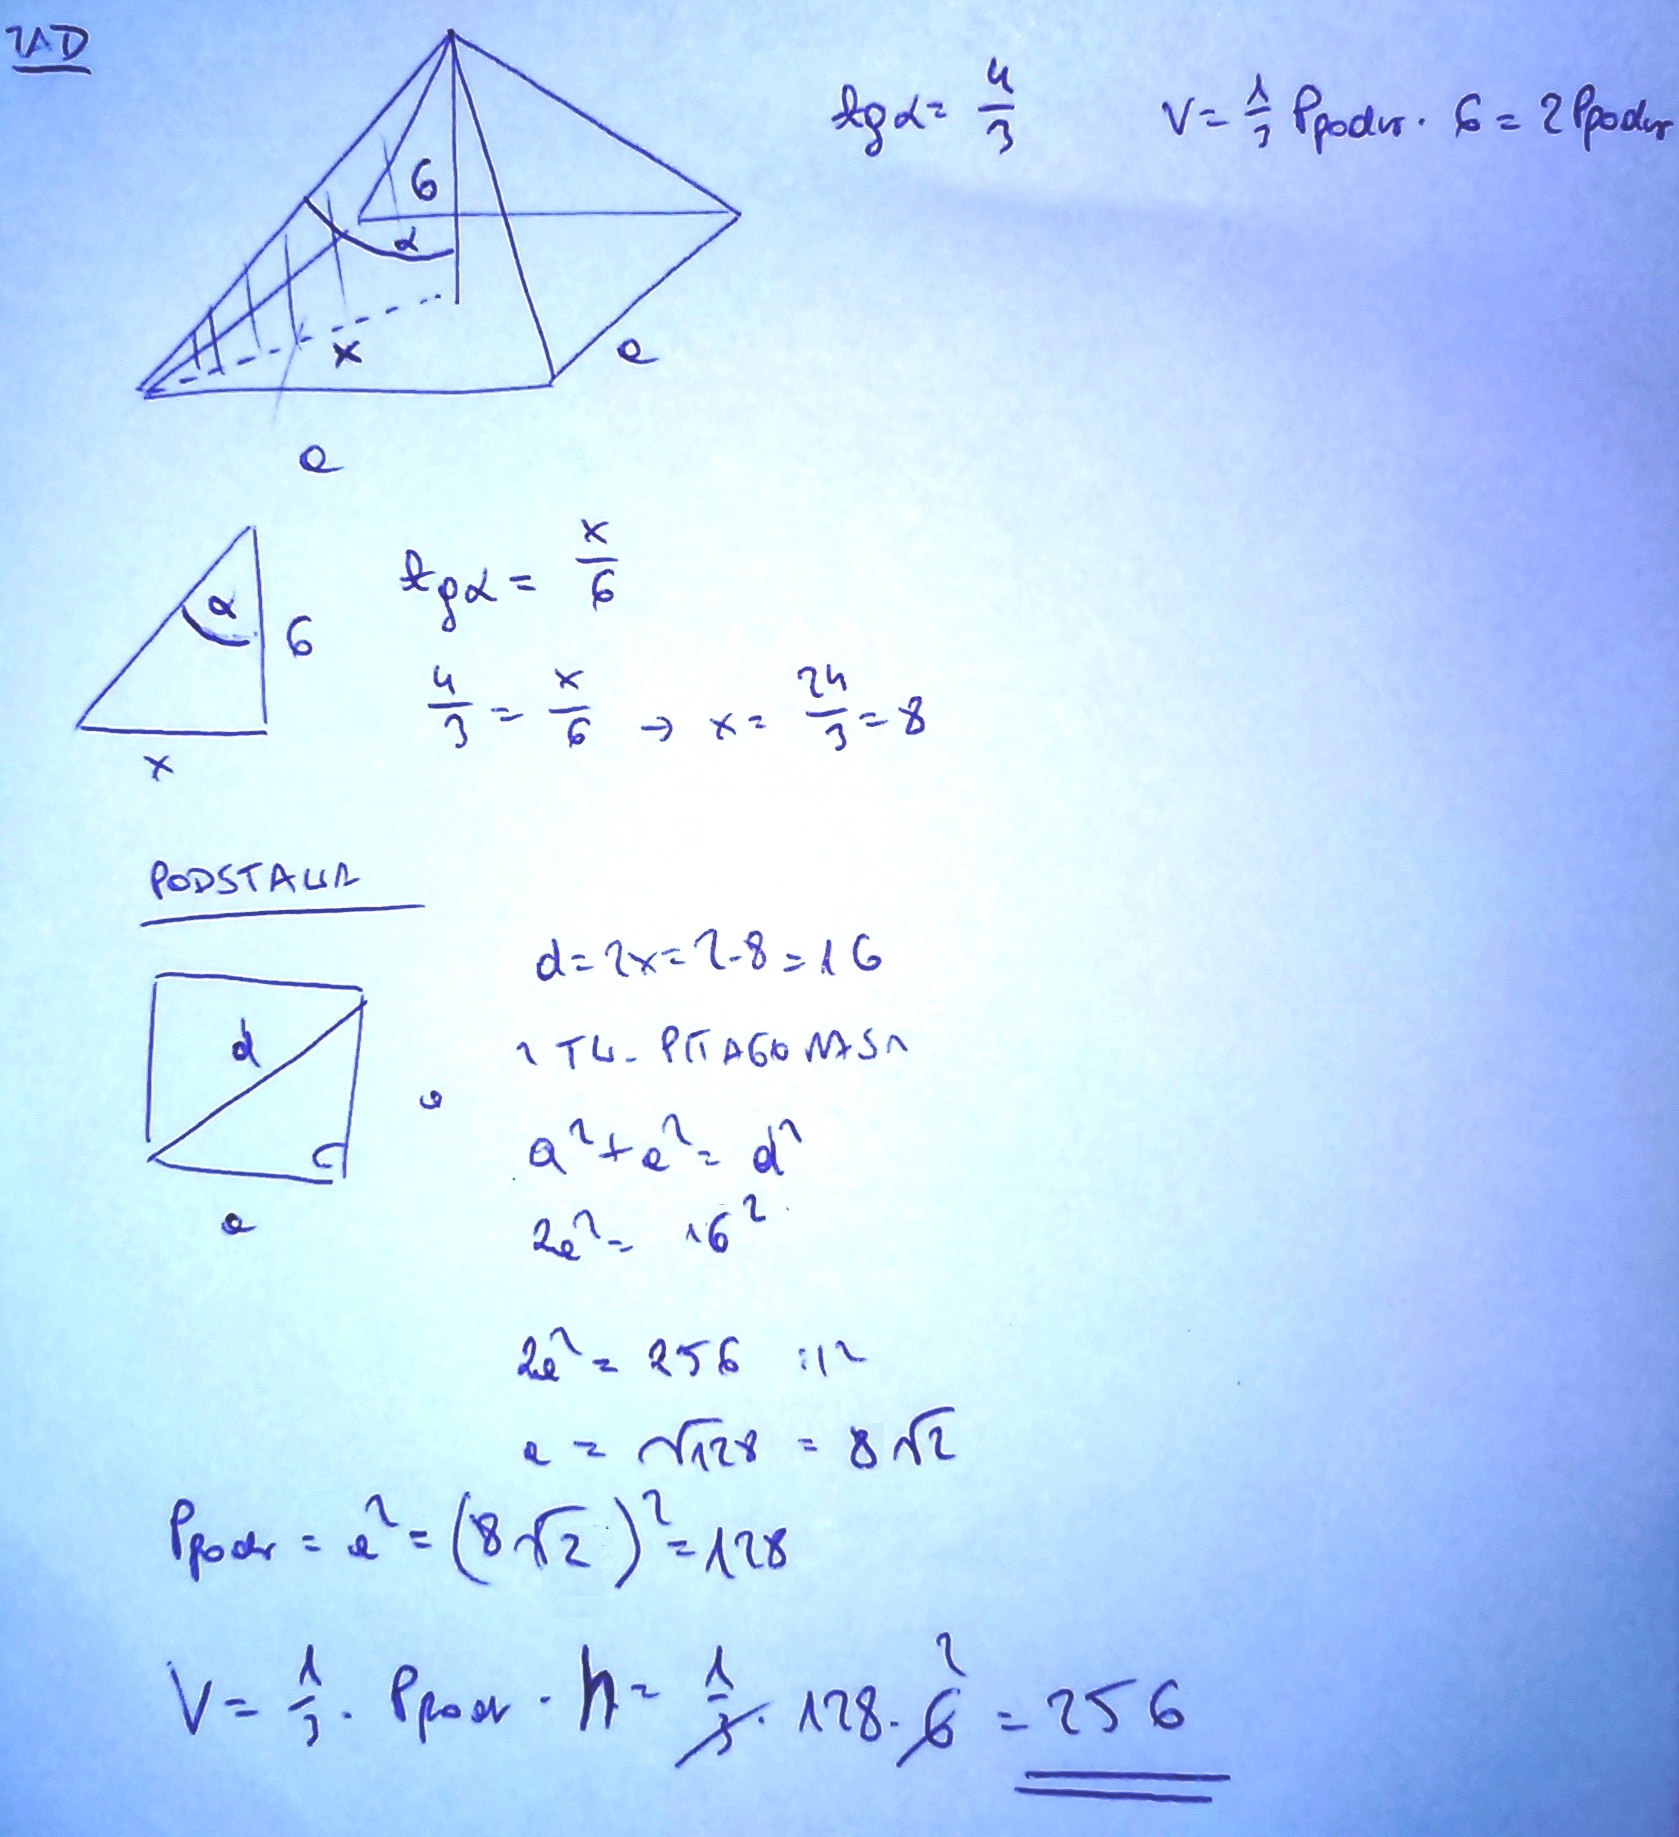 ZAD
tg α = 4/3 V = 1/3 Ppodst · 6 = 2 Ppodst
6
α
x
a
a
tg α = x/6
α
6
4/3 = x/6 → x = 24/3 = 8
x
PODSTAWA
d = 2x = 2·8 = 16
d
z TW. PITAGORASA
a
a² + a² = d²
a
2a² = 16²
2a² = 256 :12
a = √128 = 8√2
Ppodst = a² = (8√2)² = 128
V = 1/3 · Ppodst · h = 1/3 · 128 · 6 2 = 256